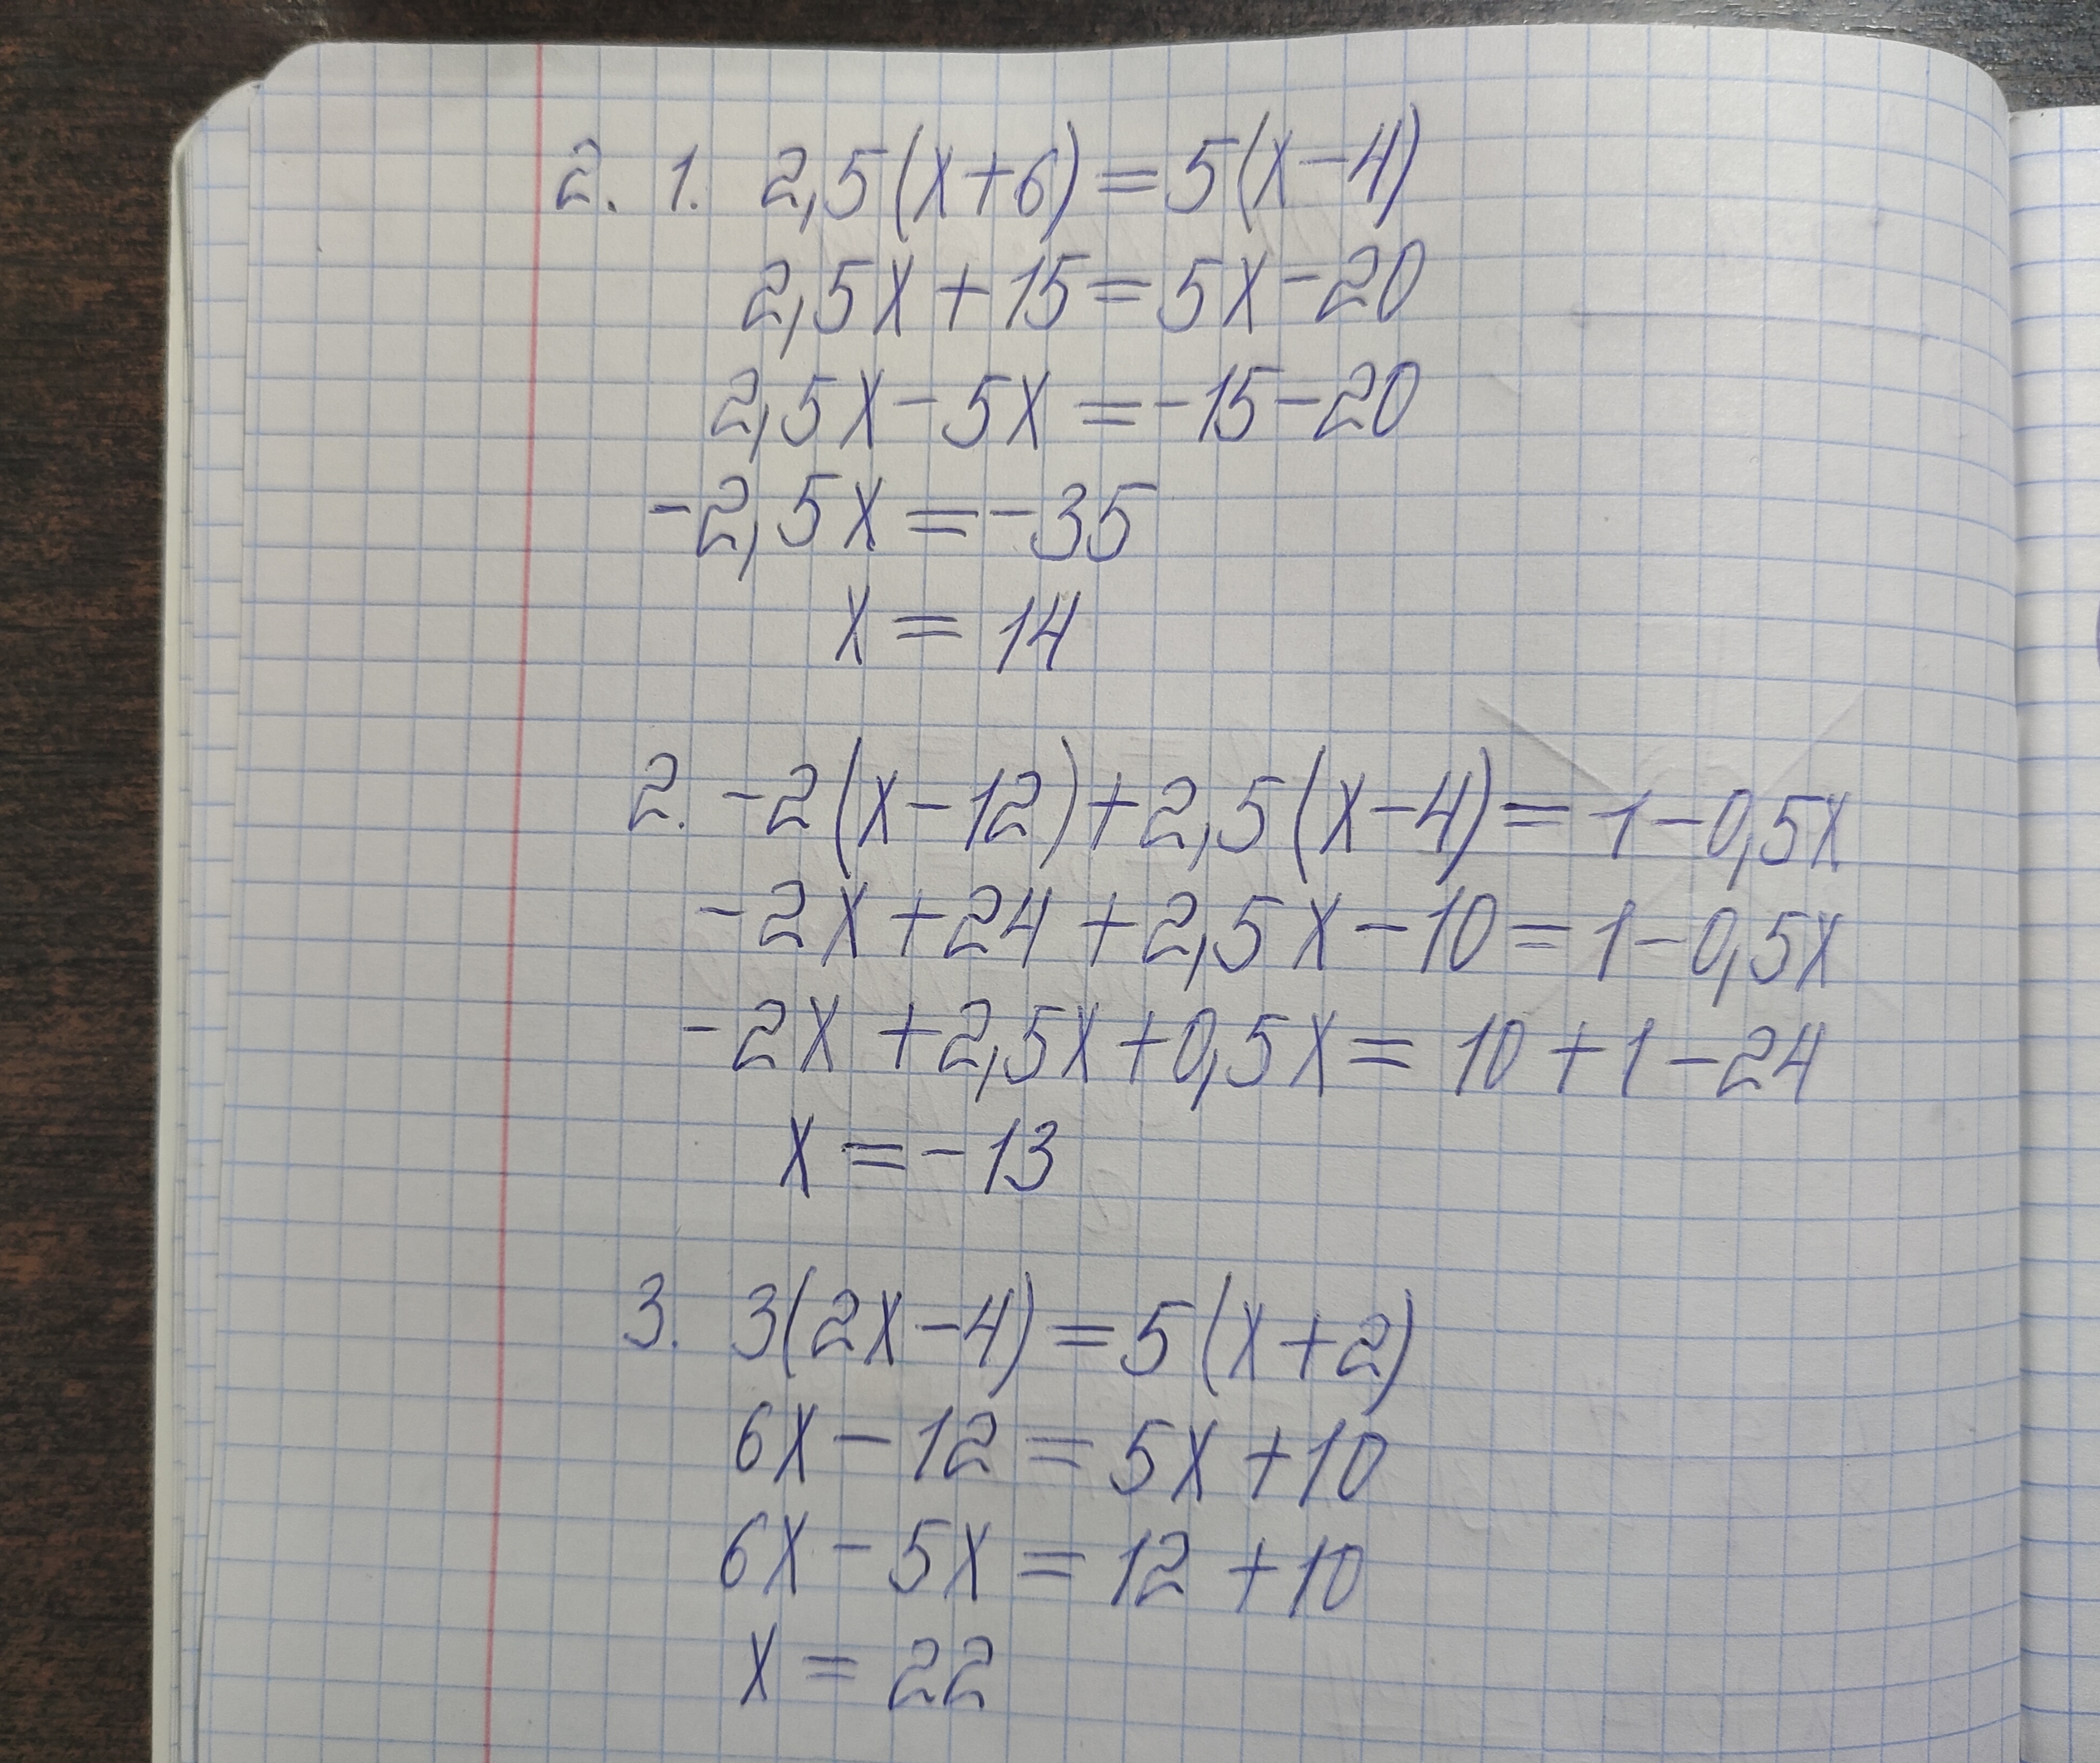 2. 1. 2,5(x+6)=5(x-4)
2,5x+15=5x-20
2,5x-5x=-15-20
-2,5x=-35
x=14
2. -2(x-12)+2,5(x-4)=1-0,5x
-2x+24+2,5x-10=1-0,5x
-2x+2,5x+0,5x=10+1-24
x=-13
3. 3(2x-4)=5(x+2)
6x-12=5x+10
6x-5x=12+10
x=22